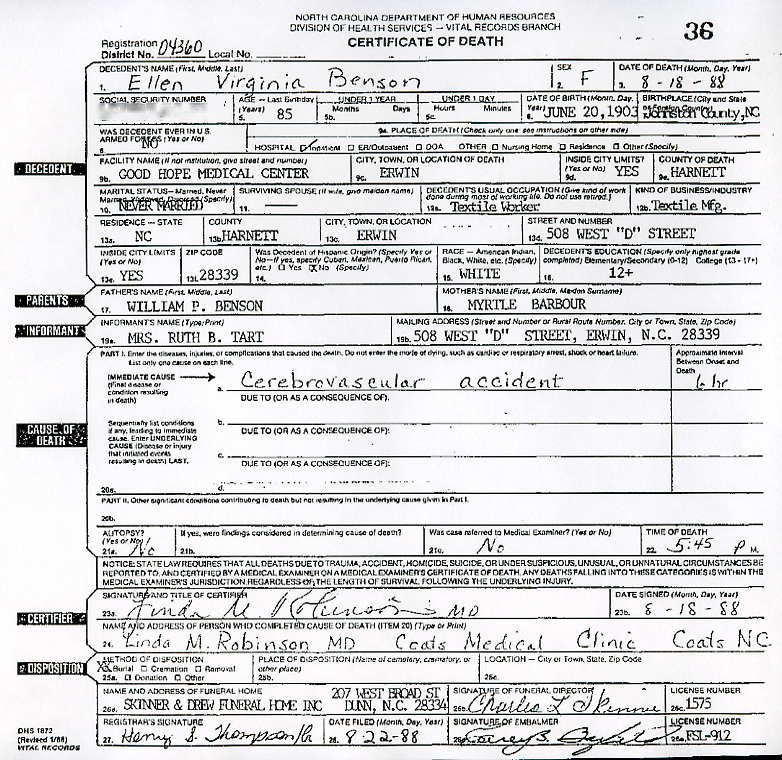 NORTH CAROLINA DEPARTMENT OF HUMAN RESOURCES
DIVISION OF HEALTH SERVICES — VITAL RECORDS BRANCH
CERTIFICATE OF DEATH
36
Registration District No. 04360 Local No.
DECEDENT'S NAME (First, Middle, Last) SEX DATE OF DEATH (Month, Day, Year)
1. Ellen Virginia Benson 2. F 3. 8-18-88
SOCIAL SECURITY NUMBER AGE — Last Birthday (Years) UNDER 1 YEAR UNDER 1 DAY DATE OF BIRTH (Month, Day, BIRTHPLACE (City and State or Foreign Country)
5. 85 5b. Months Days 5c. Hours Minutes 6. JUNE 20, 1903 Johnston County, NC
WAS DECEDENT EVER IN U.S. ARMED FORCES? (Yes or No) NO
9a. PLACE OF DEATH (Check only one: see instructions on other side)
HOSPITAL: Inpatient ER/Outpatient DOA OTHER: Nursing Home Residence Other (Specify)
DECEDENT
FACILITY NAME (If not institution, give street and number) CITY, TOWN, OR LOCATION OF DEATH INSIDE CITY LIMITS? COUNTY OF DEATH
9b. GOOD HOPE MEDICAL CENTER 9c. ERWIN 9d. YES 9e. HARNETT
MARITAL STATUS—Married, Never Married, Widowed, Divorced (Specify) SURVIVING SPOUSE (If wife, give maiden name) DECEDENT'S USUAL OCCUPATION (Give kind of work done during most of working life. Do not use retired.) KIND OF BUSINESS/INDUSTRY
10. NEVER MARRIED 11. — 12a. Textile Worker 12b. Textile Mfg.
RESIDENCE — STATE COUNTY CITY, TOWN, OR LOCATION STREET AND NUMBER
13a. NC 13b. HARNETT 13c. ERWIN 13d. 508 WEST "D" STREET
INSIDE CITY LIMITS (Yes or No) ZIP CODE Was Decedent of Hispanic Origin? (Specify Yes or No—If yes, specify Cuban, Mexican, Puerto Rican, etc.) Yes No (Specify) RACE — American Indian, Black, White, etc. (Specify) DECEDENT'S EDUCATION (Specify only highest grade completed) Elementary/Secondary (0-12) College (13 - 17+)
13e. YES 13f. 28339 14. 15. WHITE 16. 12+
PARENTS
FATHER'S NAME (First, Middle, Last) MOTHER'S NAME (First, Middle, Maiden Surname)
17. WILLIAM P. BENSON 18. MYRTLE BARBOUR
INFORMANT
INFORMANT'S NAME (Type/Print) MAILING ADDRESS (Street and Number or Rural Route Number, City or Town, State, Zip Code)
19a. MRS. RUTH B. TART 19b. 508 WEST "D" STREET, ERWIN, N.C. 28339
PART I. Enter the diseases, injuries, or complications that caused the death. Do not enter the mode of dying, such as cardiac or respiratory arrest, shock or heart failure. List only one cause on each line.
Approximate Interval Between Onset and Death
IMMEDIATE CAUSE (Final disease or condition resulting in death)
a. Cerebrovascular accident 6 hr
DUE TO (OR AS A CONSEQUENCE OF):
CAUSE OF DEATH
Sequentially list conditions if any, leading to immediate cause. Enter UNDERLYING CAUSE (Disease or injury that initiated events resulting in death) LAST.
b.
DUE TO (OR AS A CONSEQUENCE OF):
c.
DUE TO (OR AS A CONSEQUENCE OF):
20a. d.
PART II. Other significant conditions contributing to death but not resulting in the underlying cause given in Part I.
20b.
AUTOPSY? (Yes or No) If yes, were findings considered in determining cause of death? Was case referred to Medical Examiner? (Yes or No) TIME OF DEATH
21a. No 21b. 21c. No 22. 5:45 P M.
NOTICE: STATE LAW REQUIRES THAT ALL DEATHS DUE TO TRAUMA, ACCIDENT, HOMICIDE, SUICIDE, OR UNDER SUSPICIOUS, UNUSUAL, OR UNNATURAL CIRCUMSTANCES BE
REPORTED TO, AND CERTIFIED BY A MEDICAL EXAMINER ON A MEDICAL EXAMINER'S CERTIFICATE OF DEATH. ANY DEATHS FALLING INTO THESE CATEGORIES IS WITHIN THE
MEDICAL EXAMINER'S JURISDICTION REGARDLESS OF THE LENGTH OF SURVIVAL FOLLOWING THE UNDERLYING INJURY.
CERTIFIER
SIGNATURE AND TITLE OF CERTIFIER DATE SIGNED (Month, Day, Year)
23a. Linda M Robinson MD 23b. 8-18-88
NAME AND ADDRESS OF PERSON WHO COMPLETED CAUSE OF DEATH (ITEM 20) (Type or Print)
24. Linda M. Robinson MD Coats Medical Clinic Coats NC
DISPOSITION
METHOD OF DISPOSITION PLACE OF DISPOSITION (Name of cemetery, crematory, or other place) LOCATION — City or Town, State, Zip Code
XX Burial Cremation Removal
25a. Donation Other 25b. 25c.
NAME AND ADDRESS OF FUNERAL HOME 207 WEST BROAD ST SIGNATURE OF FUNERAL DIRECTOR LICENSE NUMBER
26a. SKINNER & DREW FUNERAL HOME INC DUNN, N.C. 28334 26b. Charles L Skinner 26c. 1575
REGISTRAR'S SIGNATURE DATE FILED (Month, Day, Year) SIGNATURE OF EMBALMER LICENSE NUMBER
27. Henry S. Thompson 28. 8-22-88 FSL-912
DHS 1872
(Revised 1/88)
VITAL RECORDS